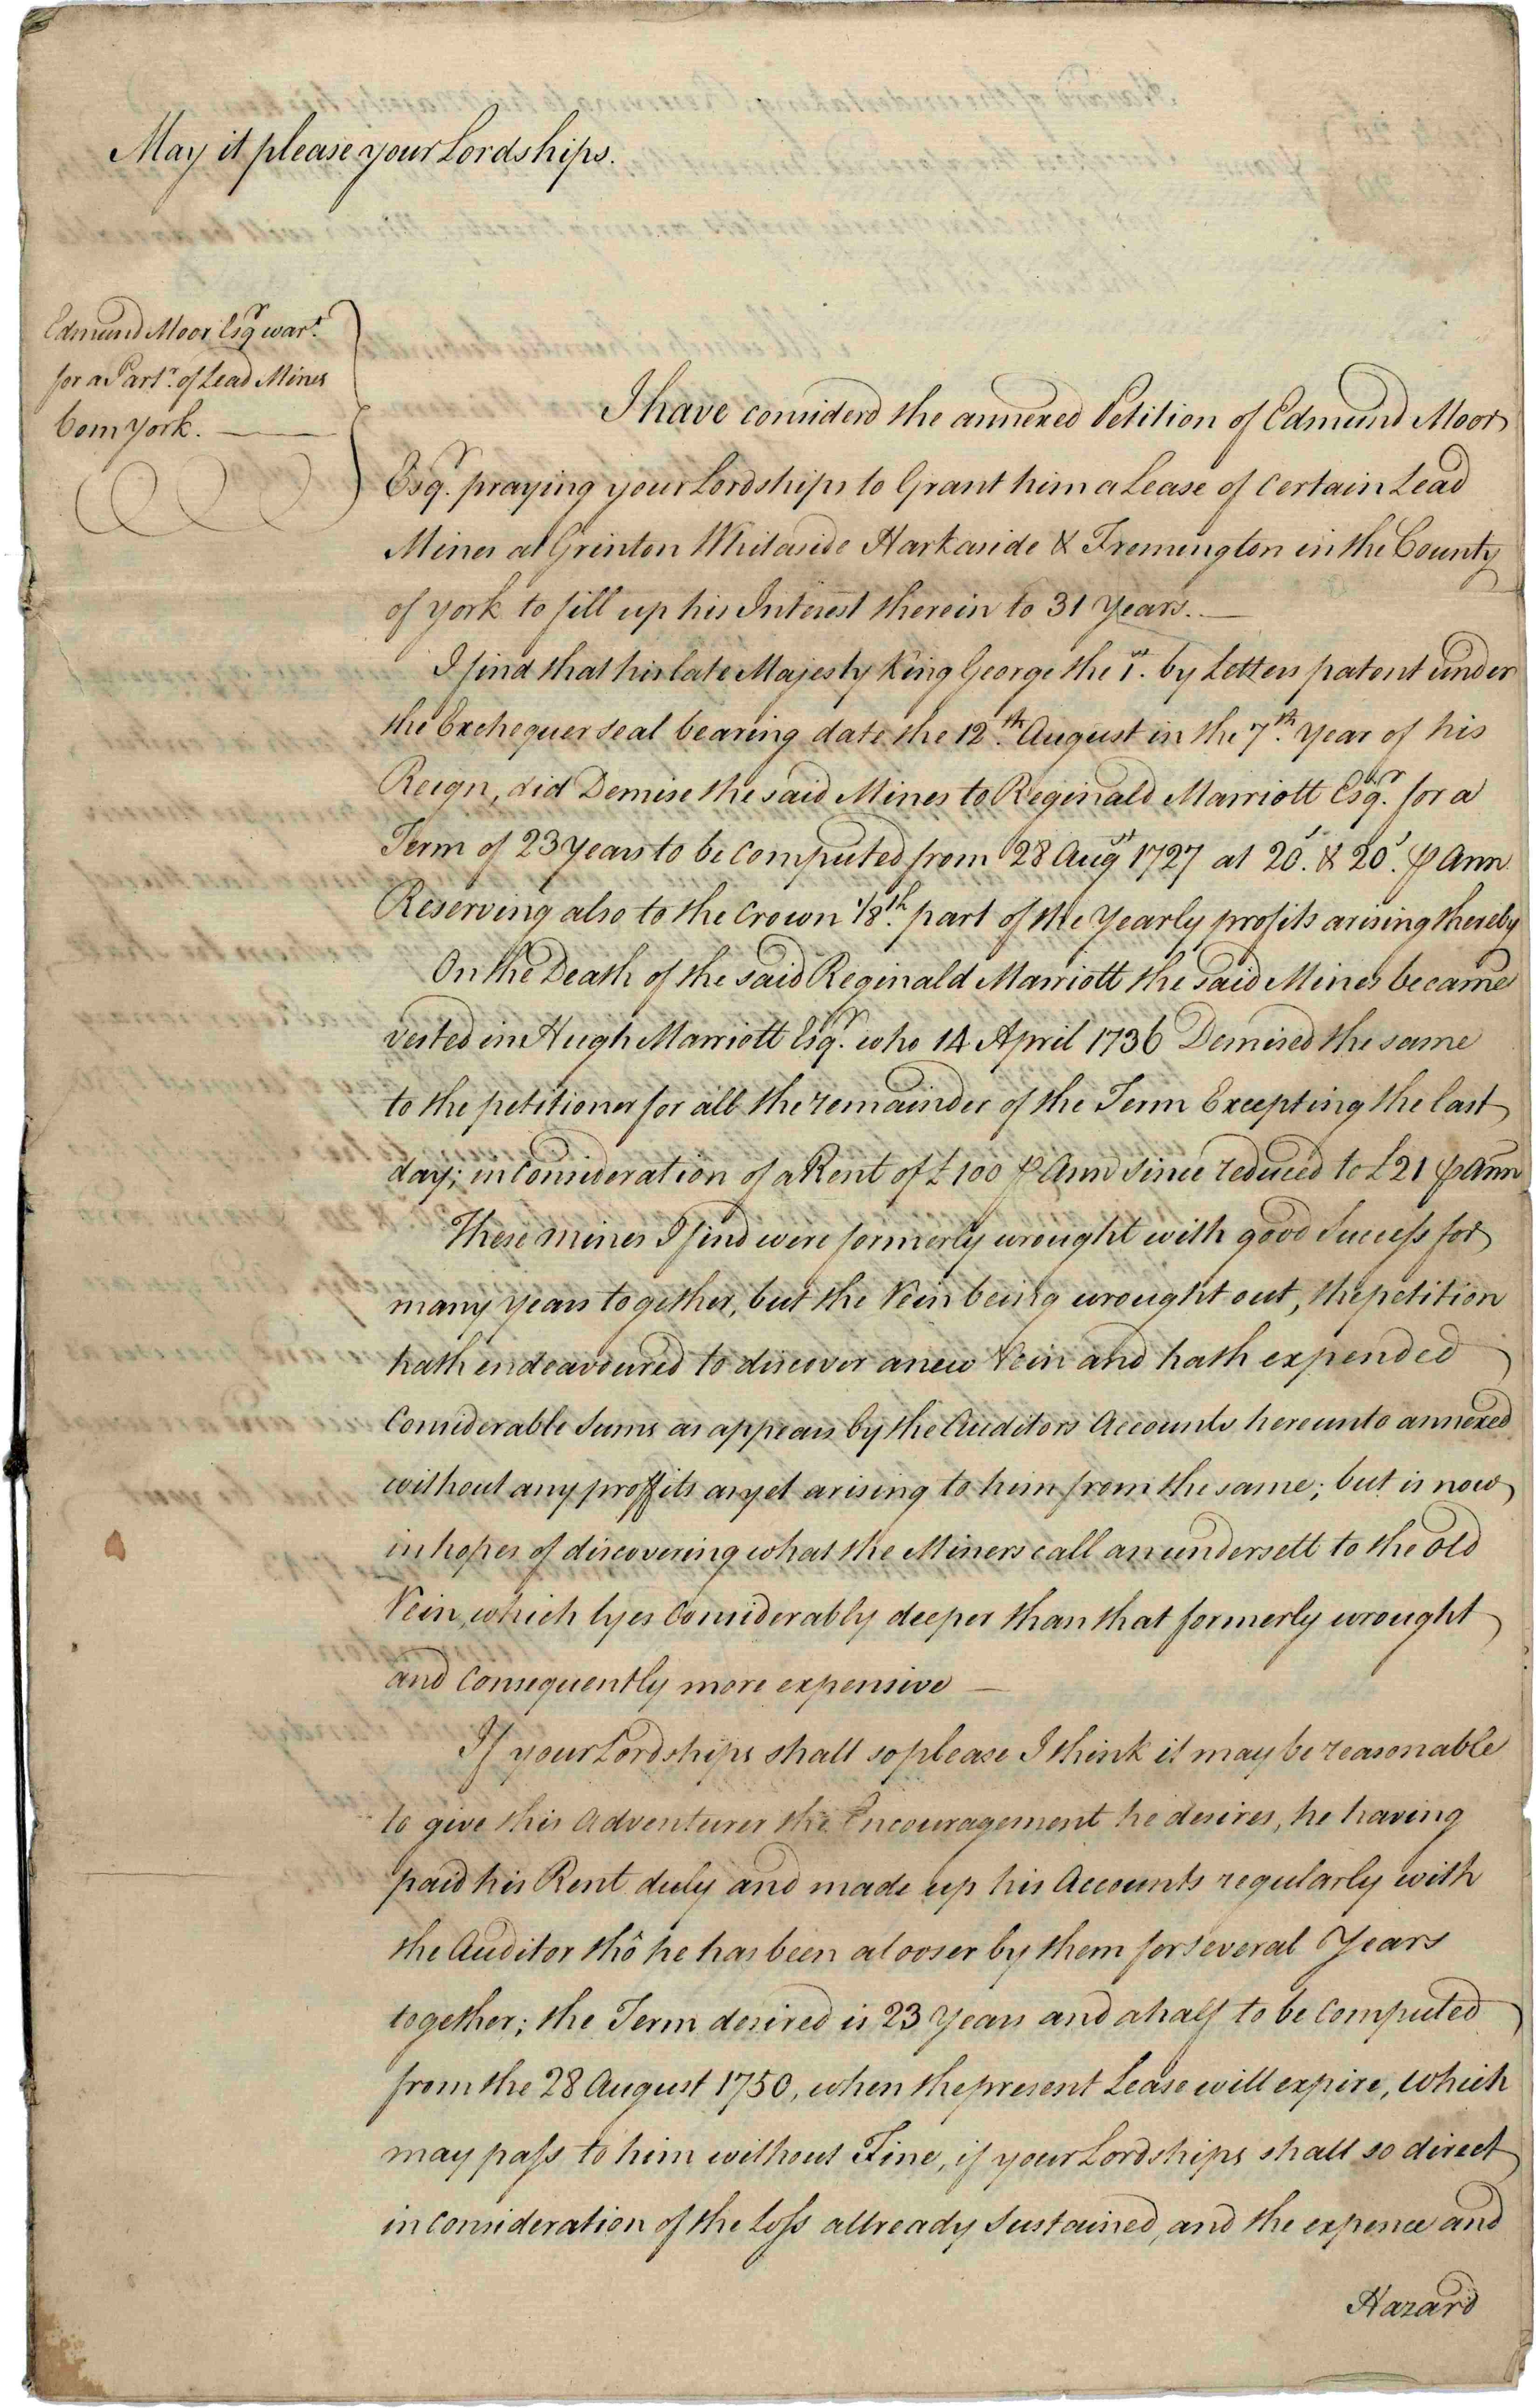 May it please your Lordships.
Edmund Moor Esqr. wart.
for a Partr. of Lead Mines
Com York.
I have considerd the annexed Petition of Edmund Moor
Esqr. praying your Lordships to Grant him a Lease of certain Lead
Mines at Grinton Whitaside Harkaside & Fremington in the County
of york to fill up his Interest therein to 31 years.
I find that his late Majesty King George the 1st. by Letters patent under
the Exchequer seal bearing date the 12th. August in the 7th. year of his
Reign, did Demise the said Mines to Reginald Marriott Esqr. for a
Term of 23 years to be computed from 28 Augst 1727 at 20s. & 20s. ꝑ Ann
Reserving also to the Crown 1/8th. part of the yearly profits arising thereby
On the Death of the said Reginald Marriott the said Mines became
vested in Hugh Marriott Esqr. who 14 April 1736 Demised the same
to the petitioner for all the remainder of the Term Excepting the last
day; in consideration of a Rent of £100 ꝑ Ann since reduced to £21 ꝑ Ann
These mines I find were formerly wrought with good Success for
many years together, but the Vein being wrought out, the petition
hath endeavoured to discover a new Vein and hath expended
Considerable Sums as appears by the Auditors Accounts hereunto annexed
without any proffits as yet arising to him from the same; but is now
in hopes of discovering what the Miners call an undersett to the old
Vein, which lyes Considerably deeper than that formerly wrought
and Consequently more expensive
If your Lordships shall so please I think it may be reasonable
to give this Adventurer the Encouragement he desires, he having
paid his Rent duly and made up his Accounts regularly with
the Auditor thô he has been a looser by them for several Years
together; the Term desired is 23 years and a half to be computed
from the 28 August 1750, when the present Lease will expire, which
may pass to him without Fine, if your Lordships shall so direct
in consideration of the Loss allready Sustained, and the expence and
Hazard